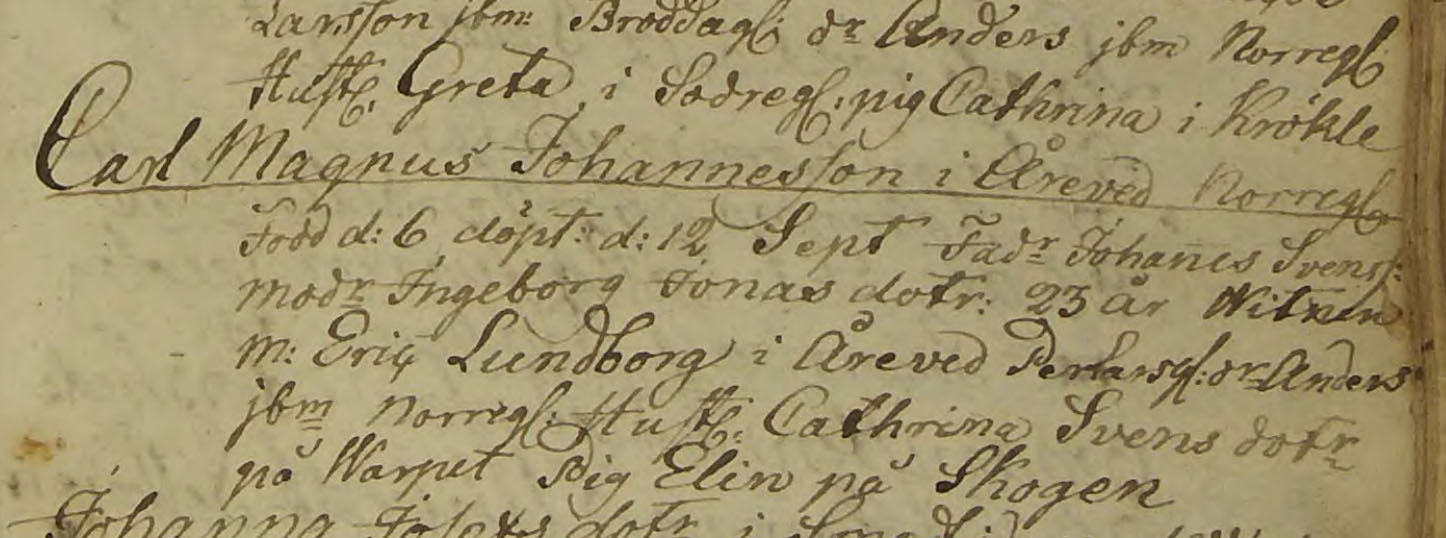 Larsson jbm: Broddag: dr Anders jbm Norreg:
Hust: Greta i Sodreg: pig Cathrina i Krökle
Carl Magnus Johannesson i Åreved Norreg:
Född d: 6 döpt: d: 12 Sept Fadr Johanes Svenss:
modr Ingeborg Jonas dotr: 23 år Witnen
m: Eric Lundborg i Åreved Perlarsg: dr Anders
jbm Norreg: Hust: Cathrina Svens dotr
på Warpet Pig Elin på Skogen
Johanna Josephs dotr i